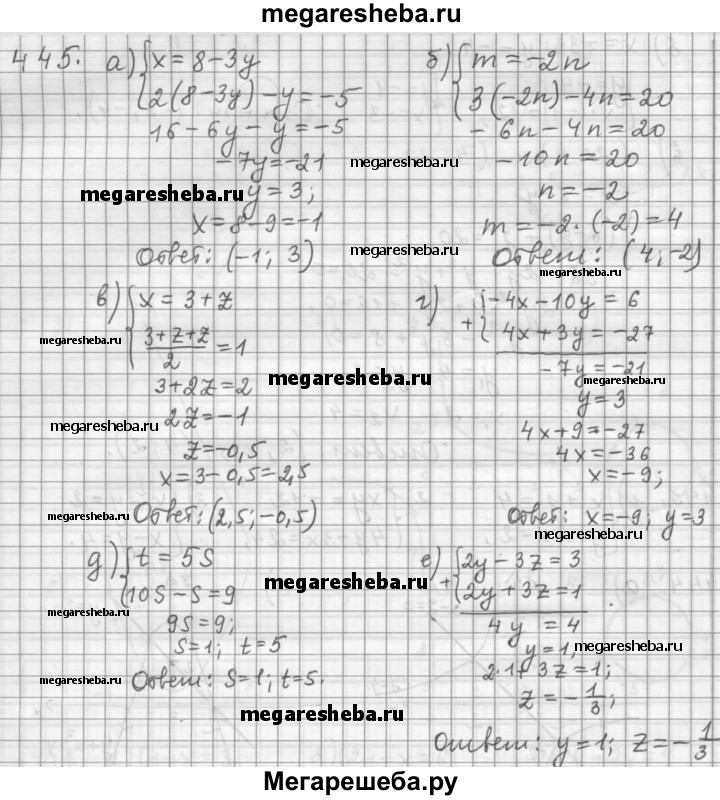 megaresheba.ru
445. а) { x = 8 - 3y
2(8 - 3y) - y = -5
16 - 6y - y = -5
-7y = -21
megaresheba.ru y = 3;
x = 8 - 9 = -1
Ответ: (-1; 3)
б) { m = -2n
3(-2n) - 4n = 20
- 6n - 4n = 20
megaresheba.ru - 10n = 20
n = -2
m = -2 · (-2) = 4
megaresheba.ru Ответ: (4; -2)
megaresheba.ru
в) { x = 3 + z
megaresheba.ru (3 + z + z)/2 = 1
3 + 2z = 2
megaresheba.ru 2z = -1
z = -0,5
x = 3 - 0,5 = 2,5
megaresheba.ru Ответ: (2,5; -0,5)
г) + { -4x - 10y = 6
4x + 3y = -27
- 7y = -21
megaresheba.ru
megaresheba.ru
y = 3
4x + 9 = -27
4x = -36
x = -9;
Ответ: x = -9; y = 3
д) { t = 5S
10S - S = 9
megaresheba.ru 9S = 9;
S = 1; t = 5
megaresheba.ru Ответ: S = 1; t = 5.
megaresheba.ru
е) + { 2y - 3z = 3
2y + 3z = 1
4y = 4
y = 1; megaresheba.ru
2·1 + 3z = 1;
z = -1/3;
megaresheba.ru
Ответ: y = 1; z = -1/3
Мегарешеба.ру